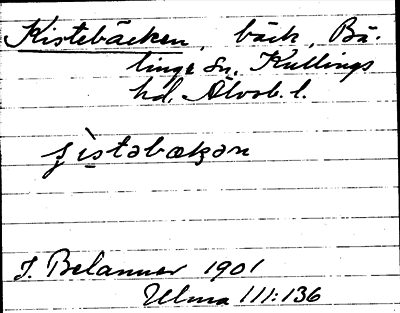 Kistebäcken, bäck, Bä-
linge sn, Kullings
hd, Älvsb. l.
ʃistəbækən
J. Belanner 1901
Ulma 111:136